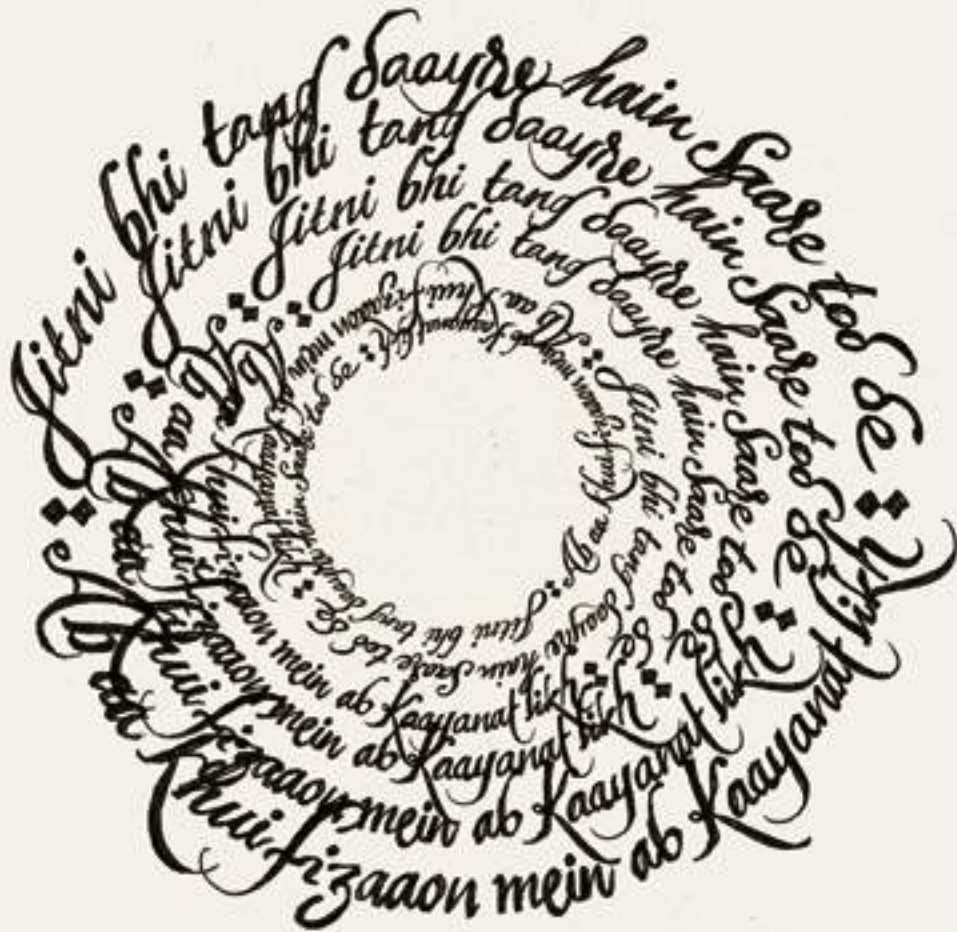 Jitni bhi tang daayre hain Saare tod de
Aa Khuli fizaaon mein ab Kaayanat likh
Jitni bhi tang daayre hain Saare tod de
Aa Khuli fizaaon mein ab Kaayanat likh
Jitni bhi tang daayre hain Saare tod de
Aa Khuli fizaaon mein ab Kaayanat likh
Jitni bhi tang daayre hain Saare tod de
Aa Khuli fizaaon mein ab Kaayanat likh
Jitni bhi tang daayre hain Saare tod de
Aa Khuli fizaaon mein ab Kaayanat likh
Jitni bhi tang daayre hain Saare tod de